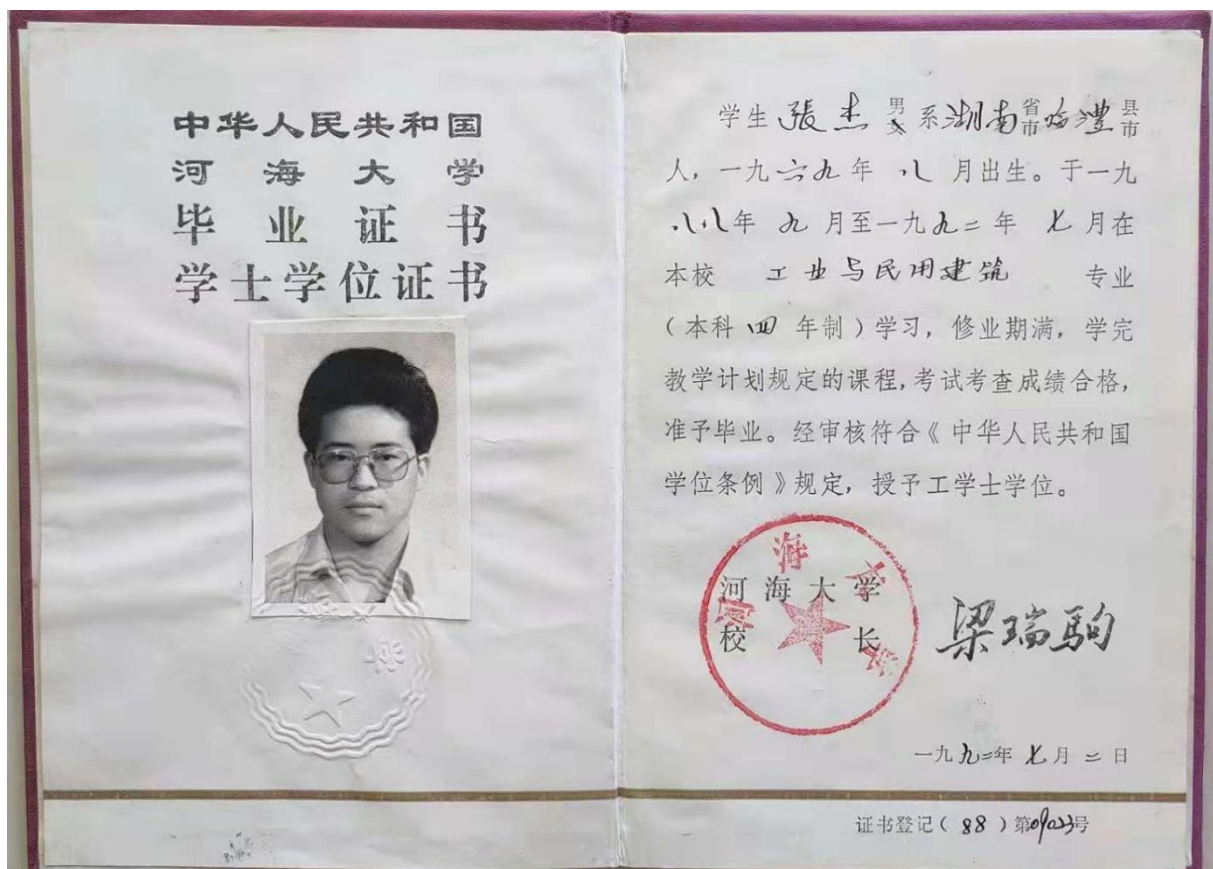 中华人民共和国
河海大学
毕业证书
学士学位证书
学生 張杰 男女 系湖南省市临澧县市
人，一九六九年 八 月出生。于一九
八八年 九 月至一九九二年 七 月在
本校 工业与民用建筑 专业
（本科 四 年制）学习，修业期满，学完
教学计划规定的课程，考试考查成绩合格，
准予毕业。经审核符合《中华人民共和国
学位条例》规定，授予工学士学位。
河海大学
河海大学
校长 梁瑞駒
一九九二年 七 月 二 日
证书登记（88）第09023号